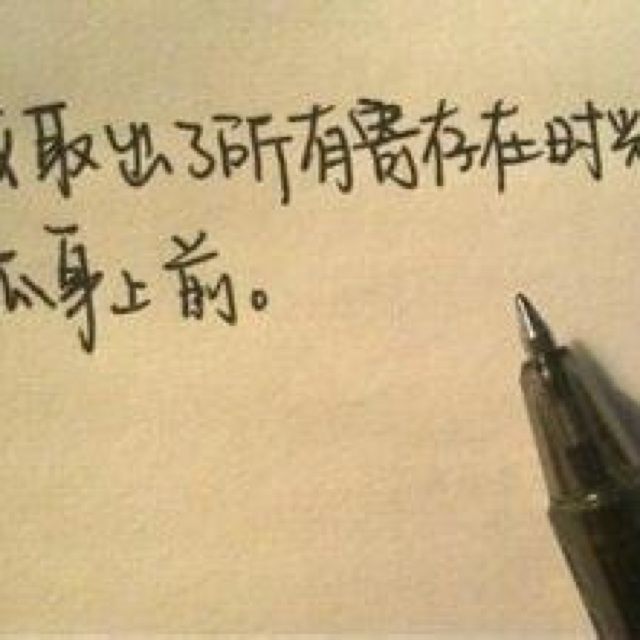 取出了所有寄存在时光
孤身上前。